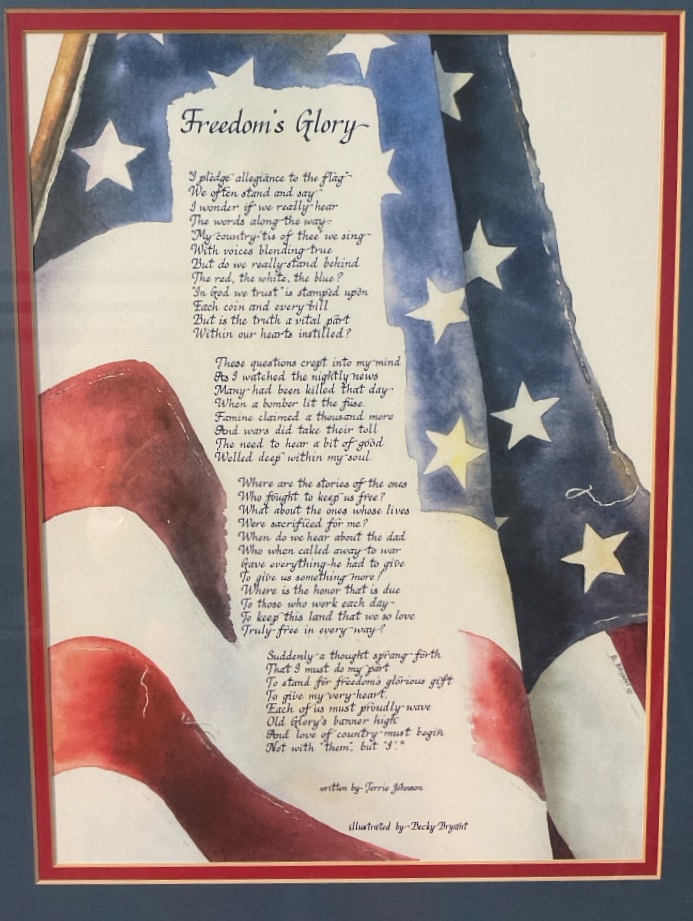 Freedom's Glory
"I pledge allegiance to the flag"
We often stand and say
I wonder if we really hear
The words along the way.
"My country 'tis of thee" we sing
With voices blending true
But do we really stand behind
The red, the white, the blue?
"In God we trust" is stamped upon
Each coin and every bill
But is the truth a vital part
Within our hearts instilled?
These questions crept into my mind
As I watched the nightly news
Many had been killed that day
When a bomber lit the fuse.
Famine claimed a thousand more
And wars did take their toll
The need to hear a bit of good
Welled deep within my soul.
Where are the stories of the ones
Who fought to keep us free?
What about the ones whose lives
Were sacrificed for me?
When do we hear about the dad
Who when called away to war
Gave everything he had to give
To give us something more?
Where is the honor that is due
To those who work each day
To keep this land that we so love
Truly free in every way?
Suddenly a thought sprang forth
That I must do my part
To stand for freedom's glorious gift
To give my very heart.
Each of us must proudly wave
Old Glory's banner high
And love of country must begin
Not with "them", but "I".
written by Terrie Johnson
illustrated by Becky Bryant
B. BRYANT ©